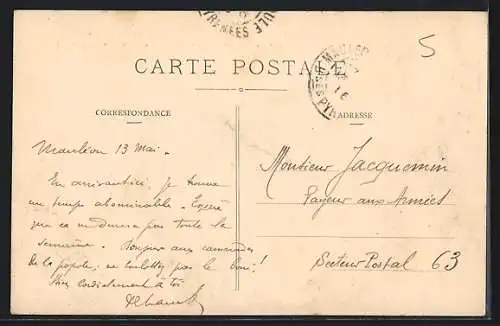 5
CARTE POSTALE
CORRESPONDANCE
ADRESSE
Mauléon 13 Mai.
En arrivant ici, je trouve
un temps abominable. Espère
que ça ne durera pas toute la
semaine. Bonjour aux camarades
de la popote; ne boulottez pas le
Bien cordialement à toi
Monsieur Jacquemin
Payeur aux Armées
Secteur Postal 63